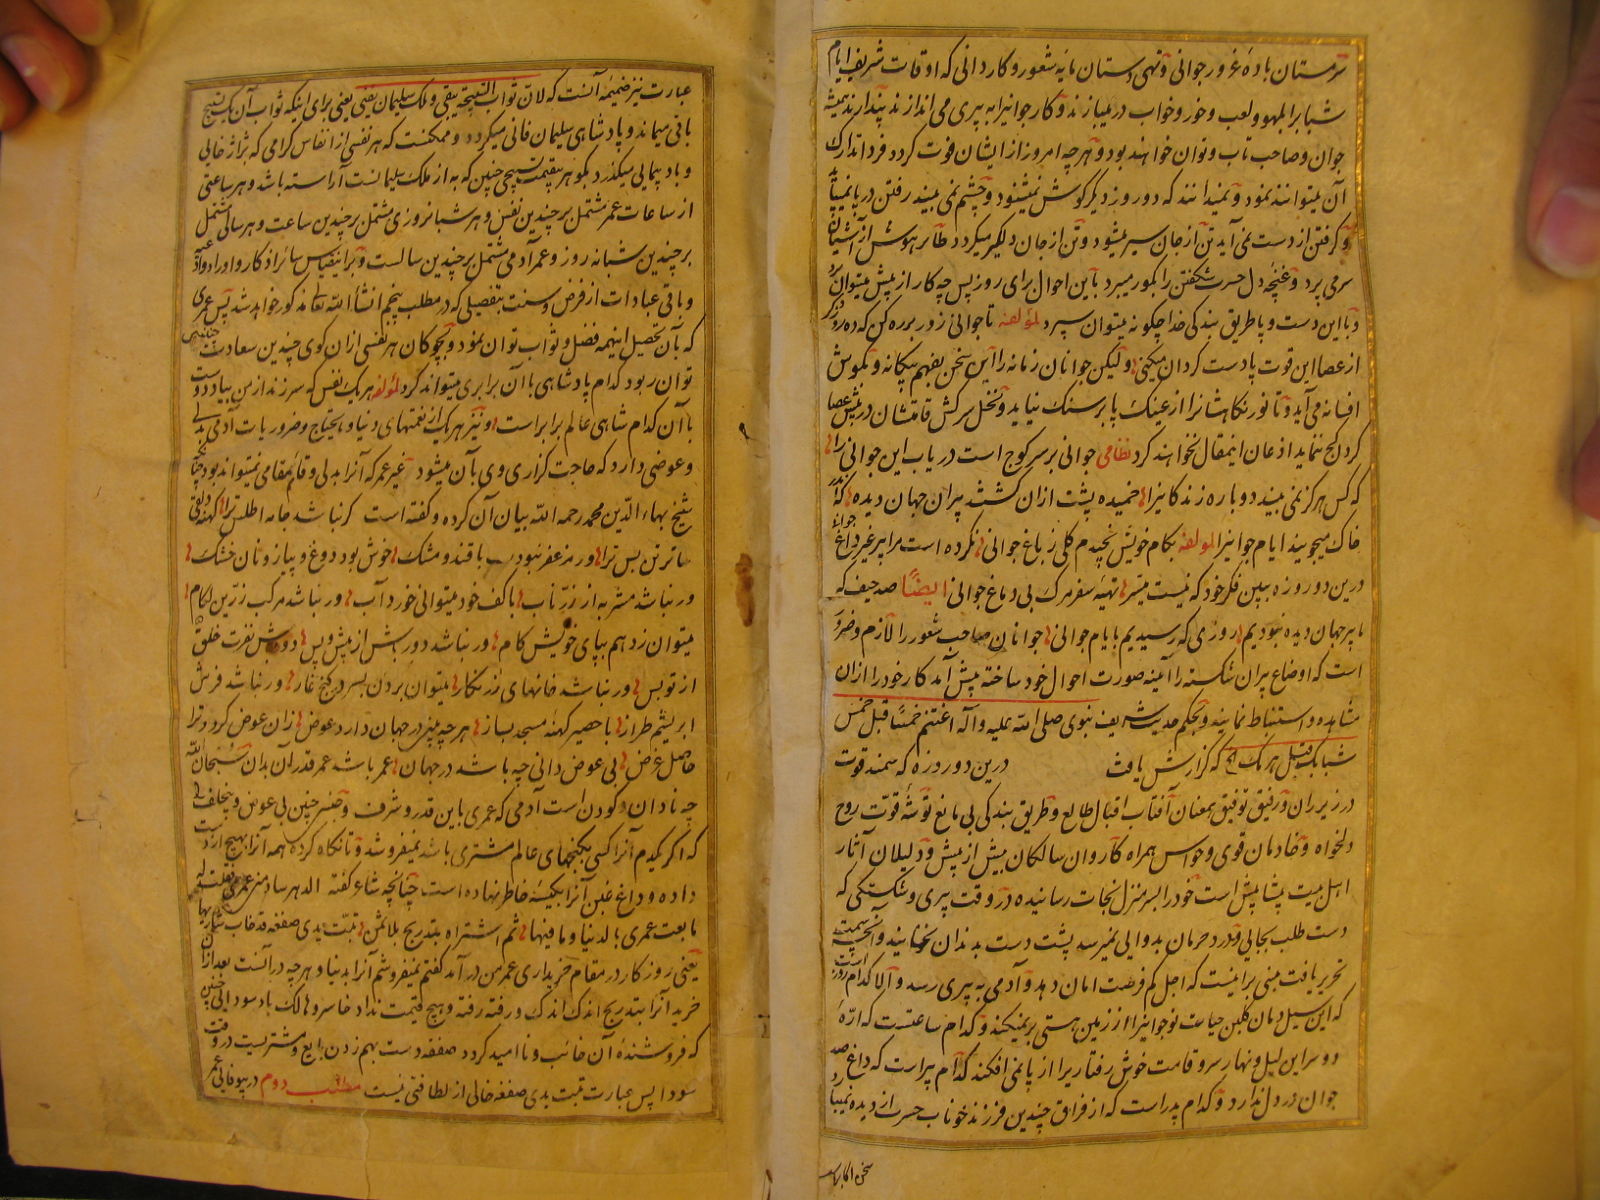 سرمستان باده غرور جوانی و تهی دستان مایه شعور و کاردانی که اوقات شریف ایام
شباب را بلهو و لعب و خور و خواب در میبازند و کار جوانی را به پیری می اندازند پندارند همیشه
جوان و صاحب تاب و توان خواهند بود و هرچه امروز از ایشان فوت گردد فردا تدارک
آن میتوانند نمود و نمیدانند که دو روز دیگر گوش نمیشنود و چشم نمی بیند رفتن در پا نمیماند
و گرفتن از دست نمی آید تن از جان سیر میشود و تن از جان دلگیر میگردد طائر هوش از آشیانه
سر می پرد و غنچه دل حسرت شگفتن را بگور میبرد باین احوال برای روز پس چه کار از پیش میتوان برد
و با این دست و پا طریق بندگی خدا چگونه میتوان سپرد لمؤلفه تا جوانی زور برره کن که ده روز دگر
از عصا این قوت پا دست گردان میکنی ولیکن جوانان زمانه را این سخن بفهم بیگانه و بگوش
افسانه می آید و تا نور نگاهشان را از عینک پا بر سنگ نیاید و نخل سرکش قامتشان در پیش عصا
گردن کج ننماید اذعان اینمقال نخواهند کرد نظامی جوانی بر سر کوچ است دریاب این جوانی را
که کس هرگز نمی بیند دوباره زندگانی را خمیده پشت ازان گشتند پیران جهان دیده که اندر
خاک میجویند ایام جوانی را لمؤلفه بکام خویش نچیدم گلی ز باغ جوانی نکرده است مرا پیر غیر داغ جوانی
درین دو روزه ببین فکر خود که نیست میسر تهیه سفر مرگ بی دماغ جوانی ایضاً صد حیف که
ما پیر جهان دیده نبودیم روزی که رسیدیم بایام جوانی جوانان صاحب شعور را لازم و ضرور
است که اوضاع پیران شکسته را آئینه صورت احوال خود ساخته پیش آمد کار خود را ازان
مشاهده و استنباط نمایند و بحکم حدیث شریف نبوی صلی الله علیه و آله اغتنم خمسا قبل خمس
شبابک قبل هرمک که گزارش یافت درین دو روزه که سمند قوت
در زیر ران و رفیق توفیق همعنان آفتاب اقبال طالع و طریق بندگی بی مانع توشه قوت روح
دلخواه و خادمان قوی و حواس همراه کاروان سالکان بیش از پیش و دلیلان آثار
اهل بیت پیشاپیش است خود را بسر منزل نجات رسانیده در وقت پیری و شکستگی که
دست طلب بجایی و درد حرمان بدوایی نمیرسد پشت دست بدندان نخایند و آنچه سمت
تحریر یافت مبنی بر اینست که اجل کم فرصت امان دهد و آدمی به پیری رسد و الا کدام روز است
که این سیل دمان گلبن حیات نوجوانی را از زمین هستی بر نمیکند و کدام ساعتست که ارّه
دو سر این لیل و نهار سرو قامت خوش رفتاری را از پا نمی افکند کدام پیر است که داغ صد
جوان در دل ندارد و کدام پدر است که از فراق چندین فرزند خوناب حسرت از دیده نمیبارد
عبارت نیز ضمیمه آنست که لان ثواب التسبیحة یبقی و ملک سلیمان یفنی یعنی برای اینکه ثواب آن یک تسبیح
باقی میماند و پادشاهی سلیمان فانی میگردد و ممکنست که هر نفسی از انفاس گرامی که بژاژخایی
و باد پیمایی میگذرد بگوهر بقیمت تسبیحی چنین که به از ملک سلیمانست آراسته باشد و هر ساعتی
از ساعات عمر مشتمل بر چندین نفس و هر شبانروزی مشتمل بر چندین ساعت و هر سالی مشتمل
بر چندین شبانه روز و عمر آدمی مشتمل بر چندین سالست و برانقیاس سائر اذکار و اوراد و ادعیه
و باقی عبادات از فرض و سنت بتفصیلی که در مطلب پنجم انشاء الله تعالی مذکور خواهد شد پس عمری
که بآن تحصیل اینهمه فضل و ثواب توان نمود و بچوگان هر نفسی ازان گوی چندین سعادت
توان ربود کدام پادشاهی با آن برابری میتواند کرد لمؤلفه هر یک نفس که سر زند از من بیاد دوست
با آن کدام شاهی عالم برابر است و نیز هریک از نعمتهای دنیا و ما یحتاج و ضروریات آدمی بدلی
و عوضی دارد که حاجت گزاری وی بآن میشود غیر عمر که آنرا بدلی و قائم مقامی نمیتواند بود چنانچه
شیخ بهاءالدین محمد رحمه الله بیان آن کرده و گفته است گر نباشد جامه اطلس ترا کهنه دلقی
ساتر تن بس ترا ور مزعفر نبودت با قند و مشک خوش بود دوغ و پیاز و نان خشک
ور نباشد مشربه از زرّ ناب با کف خود میتوانی خورد آب ور نباشد مرکب زرین لگام
میتوان زد هم بپای خویش گام ور نباشد دورباش از پیش و پس دورباش نفرت خلق
از تو بس ور نباشد خانهای زرنگار میتوان بردن بسر در کنج غار ور نباشد فرش
ابریشم طراز با حصیر کهنه مسجد بساز هرچه بینی در جهان دارد عوض زان عوض گردد ترا
حاصل غرض بی عوض دانی چه باشد در جهان عمر باشد عمر قدر آن بدان سبحان الله
چه نادان و کودن است آدمی که عمری باین قدر و شرف و جنسی چنین بی عوض و بیخلف
که اگر یکدم آنرا کسی بگنجهای عالم مشتری باشد نمیفروشد و تا نگاه کرده همه آنرا بهیچ از دست
داده و داغ غبن آنرا بکیسه خاطر نهاده است چنانچه شاعر گفته الدهر ساومنی عمری فقلت له
ما بعت عمری بالدنیا و ما فیها ثم اشتراه بتدریج بلا ثمن تبت یدی صفقة قد خاب شاریها
یعنی روزگار در مقام خریداری عمر من در آمد گفتم نمیفروشم آنرا بدنیا و هرچه در آنست بعد ازان
خرید آنرا بتدریج اندک اندک و رفته رفته و هیچ قیمت نداد خاسر و هالک باد سودایی چنین
که فروشنده آن خائب و ناامید گردد صفقه دست بهم زدن بایع و مشتریست در وقت
سودا پس عبارت تبت یدی صفقة خالی از لطافتی نیست مطلب دوم در بیوفائی عمر